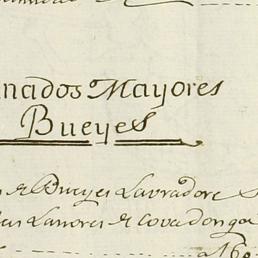 nados Mayores
Bueyes
de Bueyes Lavradore
Lanores de Covadonga
a 160